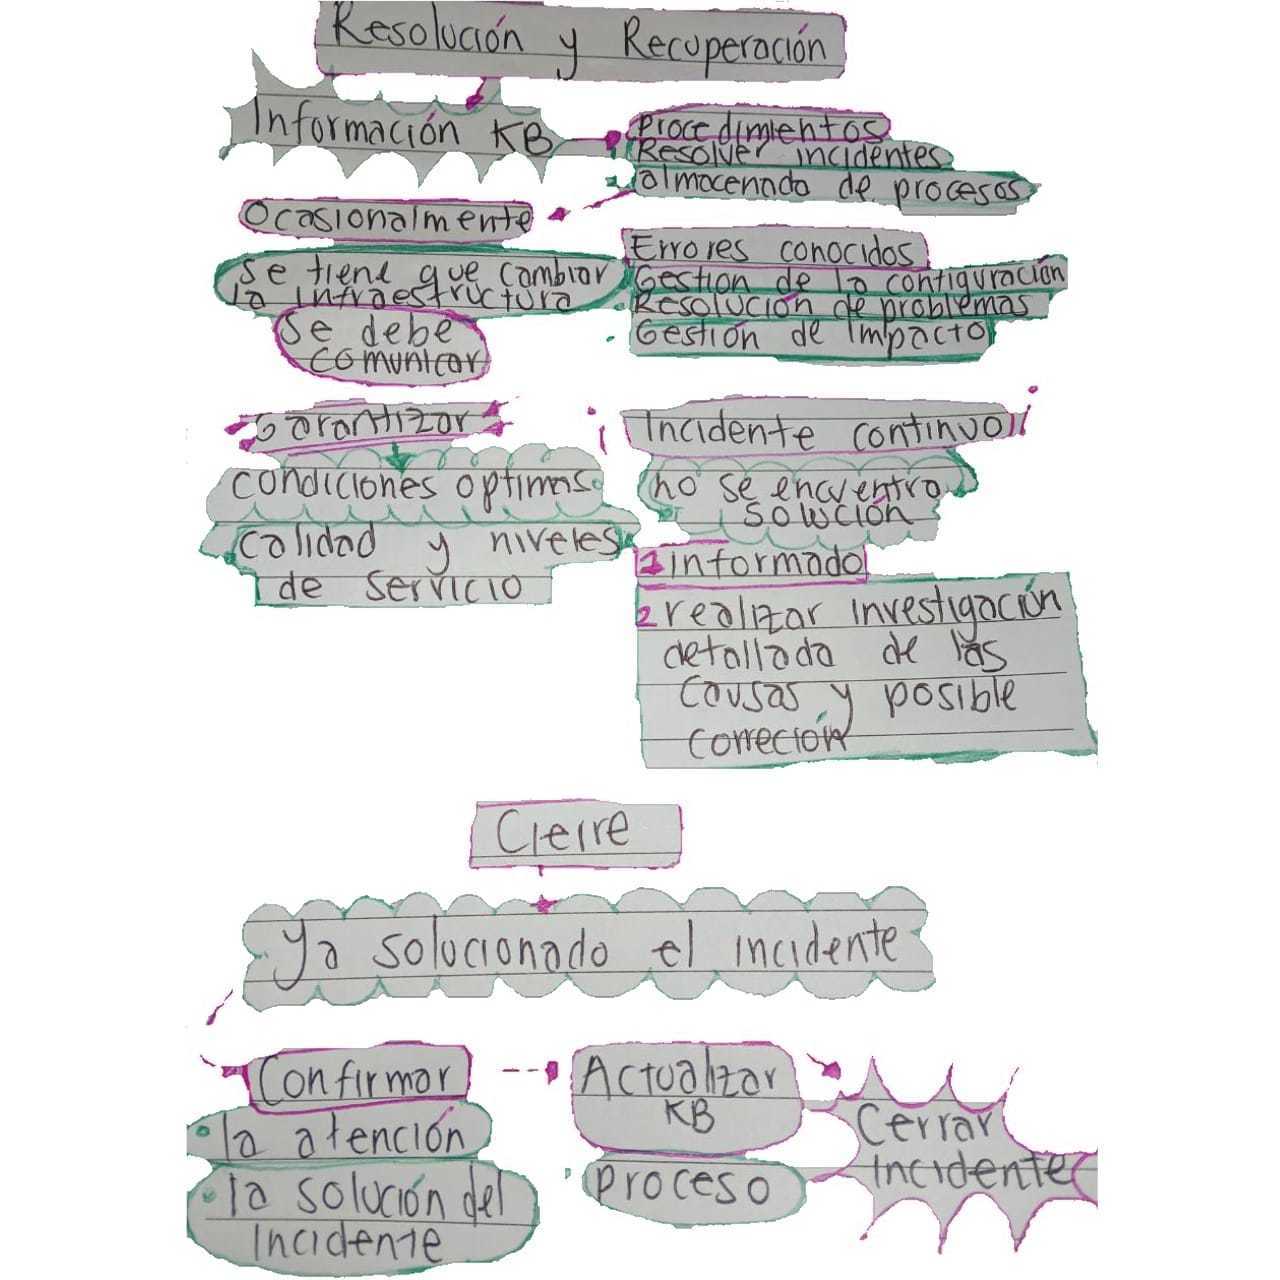 Resolución y Recuperación
Información KB
Procedimientos
Resolver incidentes
almacenado de procesos
Ocasionalmente
se tiene que cambiar
la infraestructura
se debe
comunicar
Errores conocidos
Gestion de la configuración
Resolución de problemas
Gestión de Impacto
Garantizar
condiciones optimas
calidad y niveles
de servicio
Incidente continuo
no se encuentra
solución
1 informado
2 realizar investigación
detallada de las
causas y posible
correción
Cierre
Ya solucionado el incidente
Confirmar
la atención
la solución del
incidente
Actualizar
KB
proceso
Cerrar
incidente